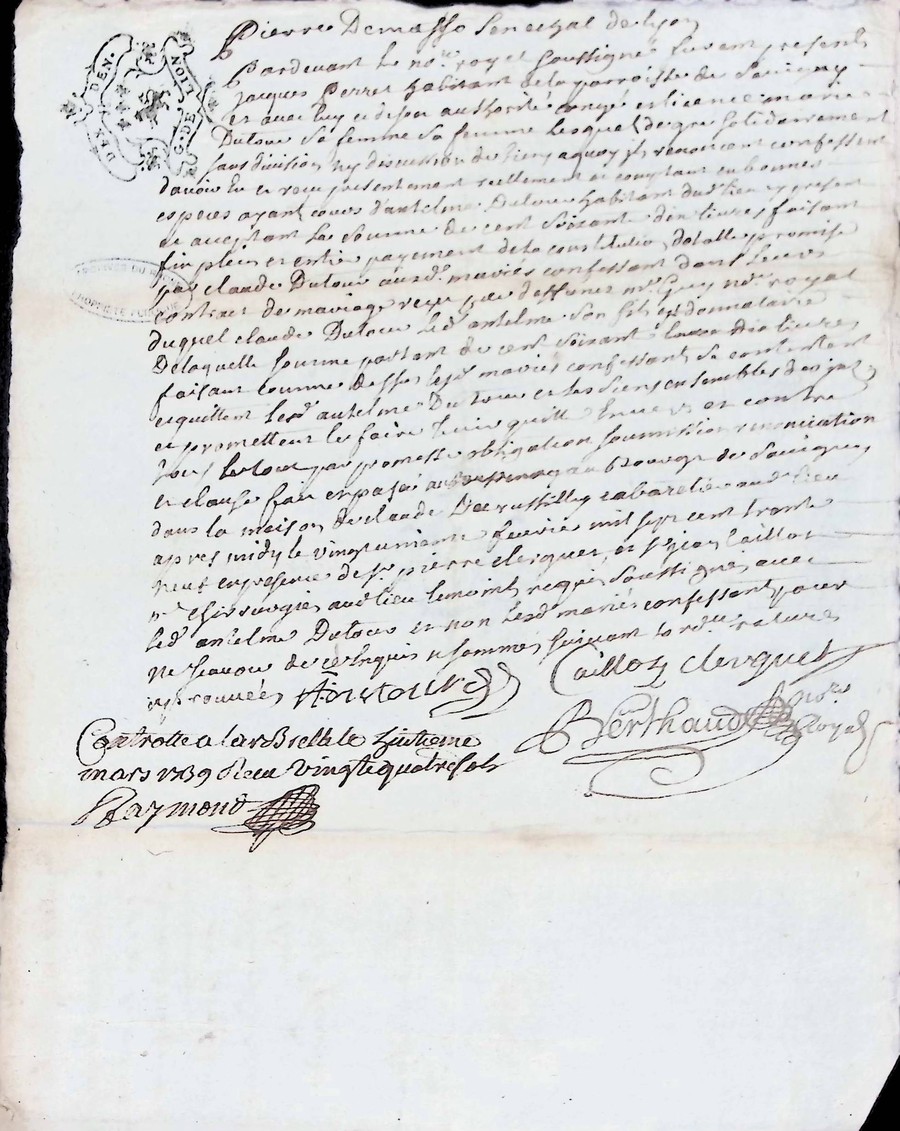 Pierre Demasso Senechal de Lyon
Pardevant le no.re royal soussigné furent presents
Jacques Perret habitant de la parroisse de Savigny
et avec luy et de son authorité congé et licence marie
Dutour sa femme sa femme lesquels de gre solidairement
sans division ny discussion de biens a quoy ils renoncent confessent
d'avoir eu et receu presentement reellement et comptant en bonnes
especes ayant cours d'antelme Dutour habitant dud. lieu cy present
et acceptant la somme de cent soixante dix livres faisant
fin plein et entier payement de la constitution dotalle promise
par claude Dutour auxd. mariés confessant dans leurs
contrat de mariage receu par deffunct m.e Guy no.re royal
duquel claude Dutour led. antelme son fils est donnataire
De laquelle somme portant de cent soixante dix livres
faisant comme dessus lesd. mariés confessants se contentent
et quittent led. antelme Dutour et les siens
et promettent le faire tenir quitte envers et contre
tous le tout par promesse obligation soumission renonciation
et clause fait et passé au bourg de Savigny
dans la maison de claude cabaretier aud. lieu
apres midy le vingt fevrier mil sept cent trente
neuf en presence de s.r pierre clerguet et s.r Caillot
m.e chirurgien aud. lieu temoins requis soussignés avec
led. antelme Dutour et non lesd. mariés confessant pour
ne sçavoir de ce enquis et sommés suivant l'ord.ce rature
approuvée A Dutour Caillot Clerguet
Berthaud no.re Royal
Controllé a larBresle le huitieme
mars 1739 Receu vingt quatre sols
Raymond
DEN.
DEUX
G. DE LION